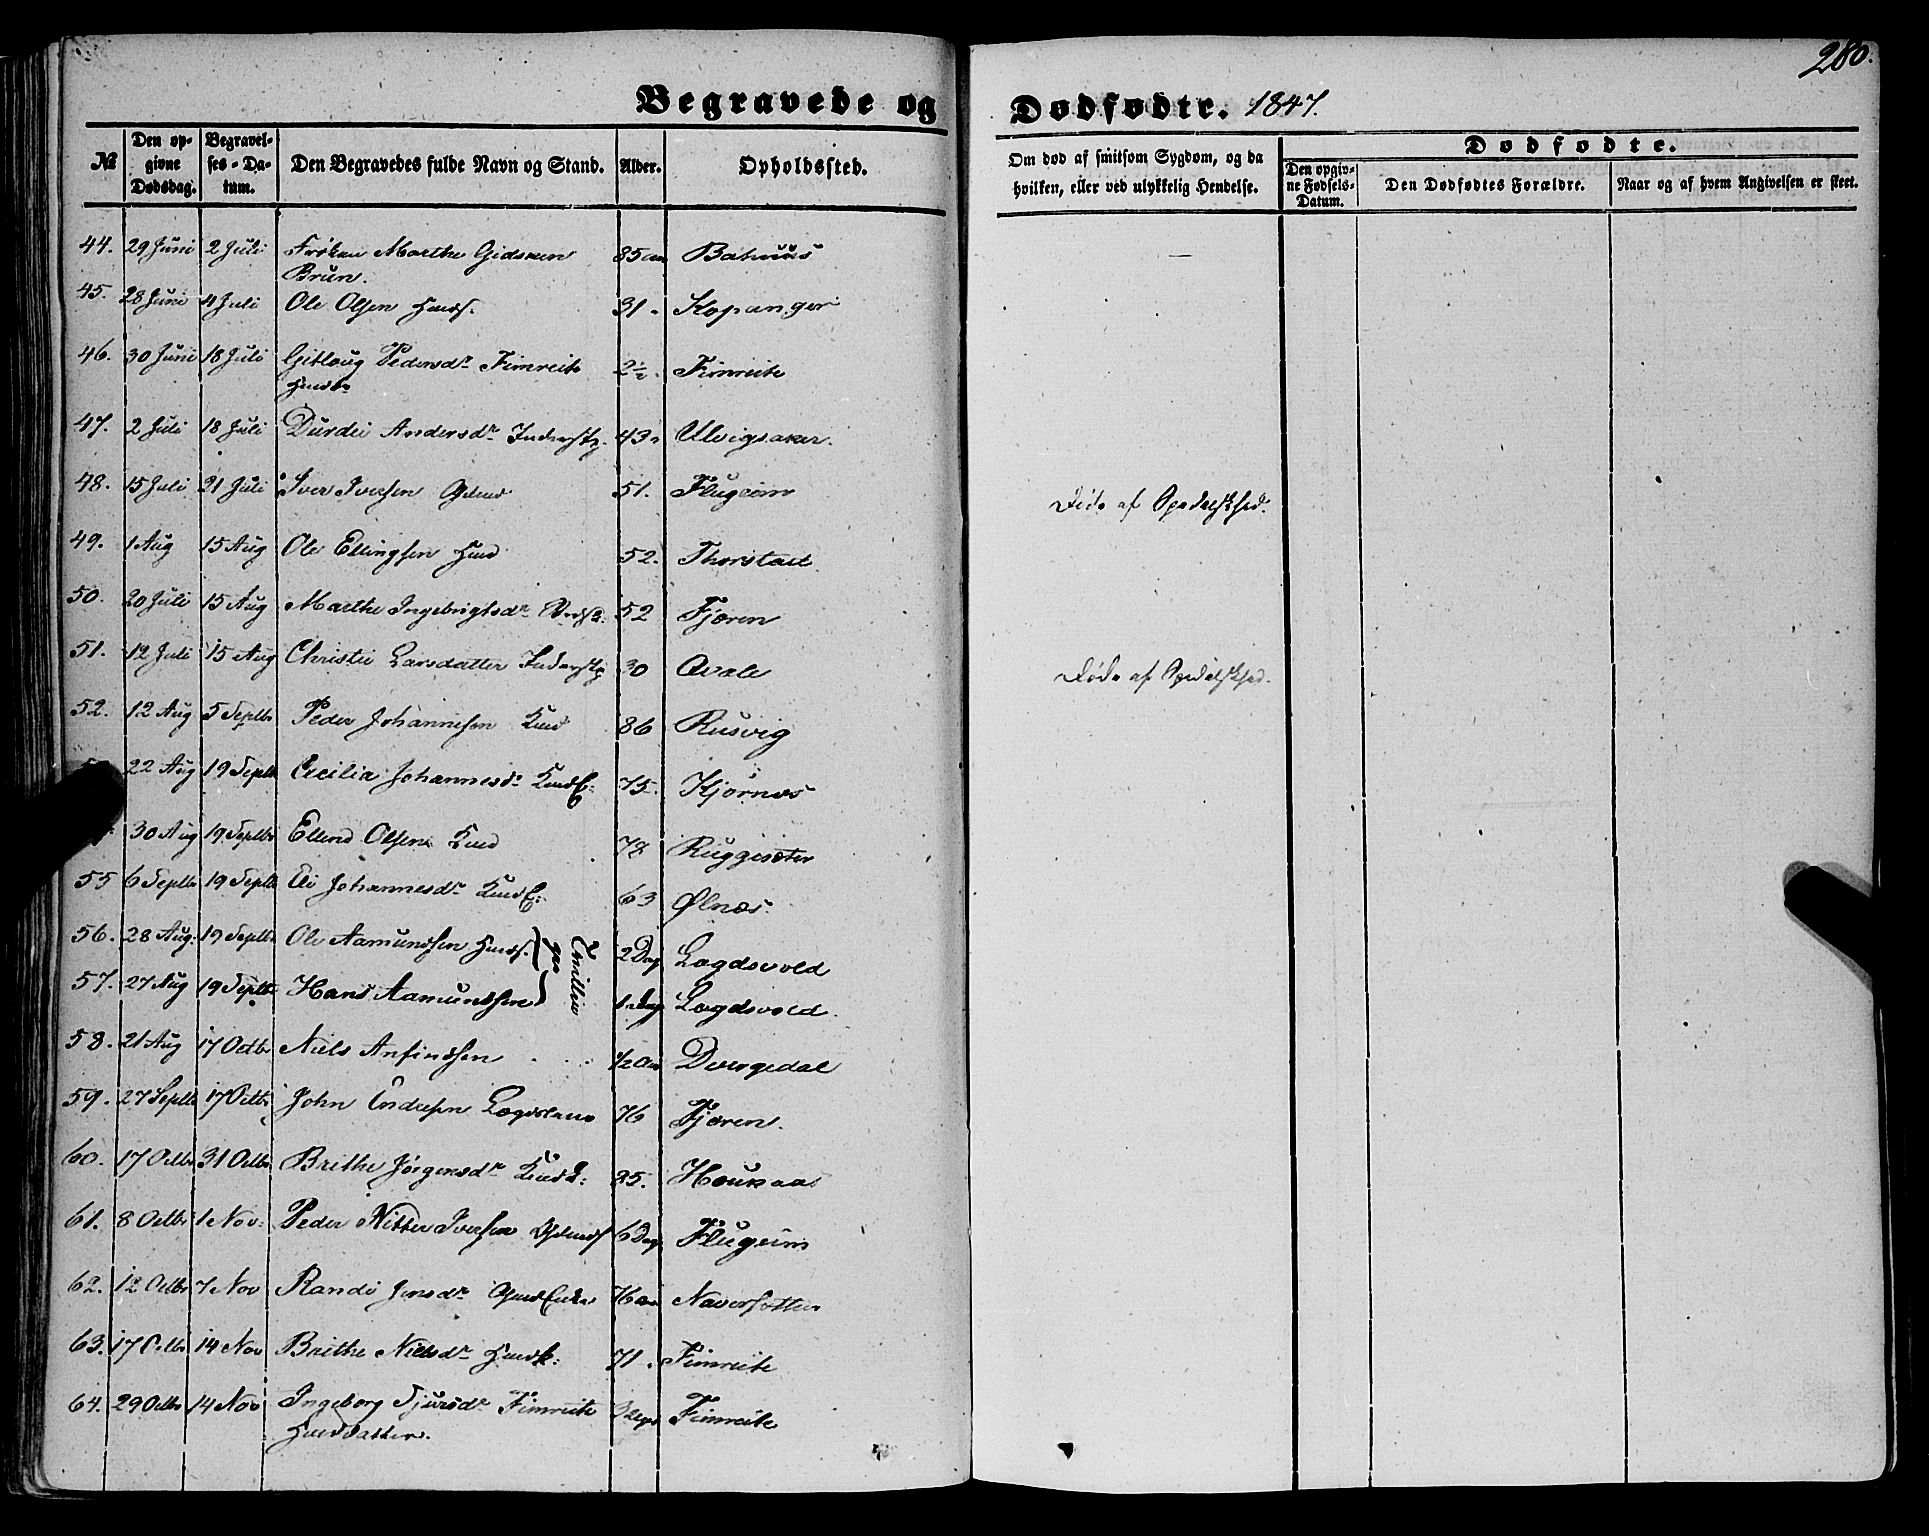 280.
Begravede og Dødfødte. 1847.
№ Den opgivne Dødsdag. Begravelses-Datum. Den Begravedes fulde Navn og Stand. Alder. Opholdssted. Om død af smitsom Sygdom, og da hvilken, eller ved ulykkelig Hendelse.
Dødfødte.
Den opgivne Fødsels-Datum. Den Dødfødtes Forældre. Naar og af hvem Angivelsen er skeet.
44. 29 Juni 2 Juli Frøken Marthe Gidsken 85 —
Brun.
45. 28 Juni 4 Juli Ole Olsen 31 Kopanger
46. 30 Juni 18 Juli Gitloug Pedersdr Fimreite 2½ Fimreite
47. 2 Juli 18 Juli Durdei Andersdr Inderstp. 43 Ulvigsaker.
48. 15 Juli 21 Juli Iver Iversen 51. Flugeim Døde af Spedalskhed.
49. 1 Aug 15 Aug Ole Ellingsen 52. Thorstad
50. 20 Juli 15 Aug Marthe Ingebrigtsdr 52 Fjæren
51. 12 Juli 15 Aug Christie Larsdatter Inderstp 30 Qvale Døde af Spedalskhed.
52. 12 Aug 5 Septbr Peder Johannesen 86 Rusvig
22 Aug 19 Septbr Cecilia Johannesdr 75. Kjørnæs
30 Aug 19 Septbr Ellend Olsen 78 Ruggesæter
55 6 Septbr 19 Septbr Eli Johannesdr 63 Ølnæs.
56. 28 Aug. 19 Septbr Ole Aamundsen 2 Dag Lægdsvold
Tvillinger
57. 27 Aug 19 Septbr Hans Aamundsen 1 Dag Lægdsvold.
58. 21 Aug 17 Octbr Niels Anfindsen ½ Aar Dvergedal
59. 27 Septbr 17 Octbr John Endresen Lægdslem 76 Fjæren.
60. 17 Octbr 31 Octbr Brithe Jørgensdr 35. Houkaas
61. 8 Octbr 1 Nov. Peder Nitter Iversen 6 Dag Flugeim
62. 12 Octbr 7 Nov Randi Jensdr 76 aar
63. 17 Octbr 14 Nov Brithe Nielsdr 71. Fimreite
64. 29 Octbr 14 Nov Ingeborg Sjursdr Fimreite 3 Fimreite
Huusdatter.